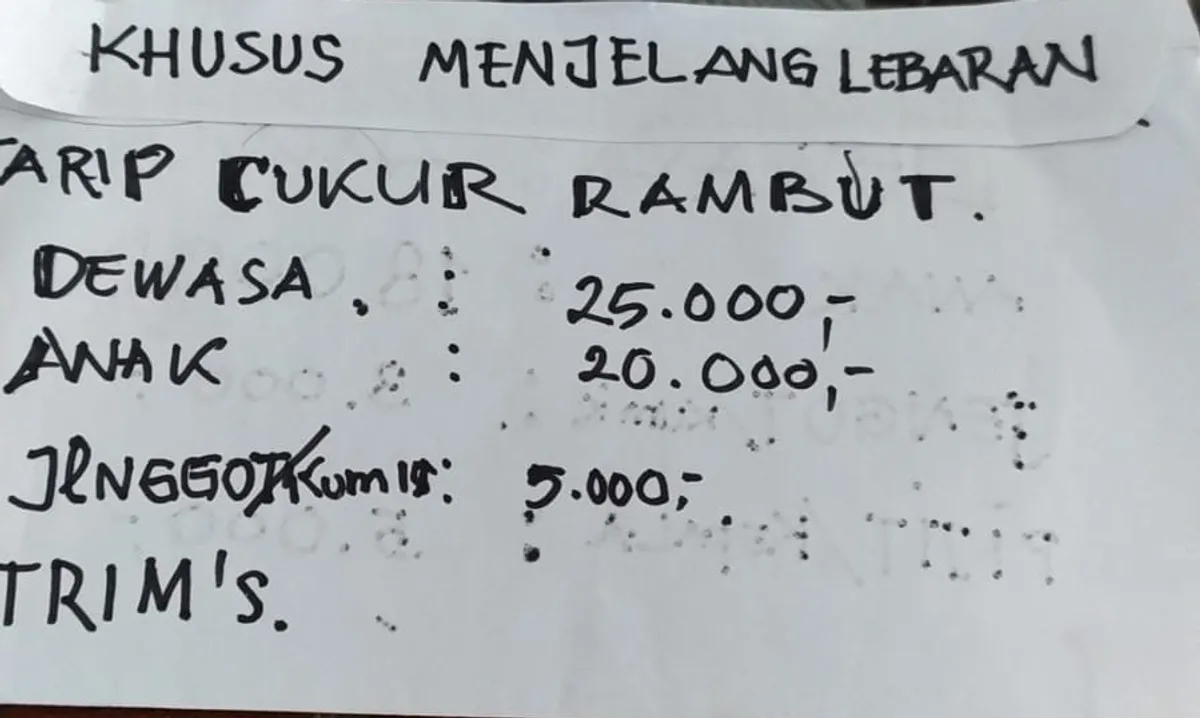 KHUSUS MENJELANG LEBARAN
TARIP CUKUR RAMBUT.
DEWASA. : 25.000,-
ANAK : 20.000,-
JENGGOT/Kumis: 5.000,-
TRIM'S.